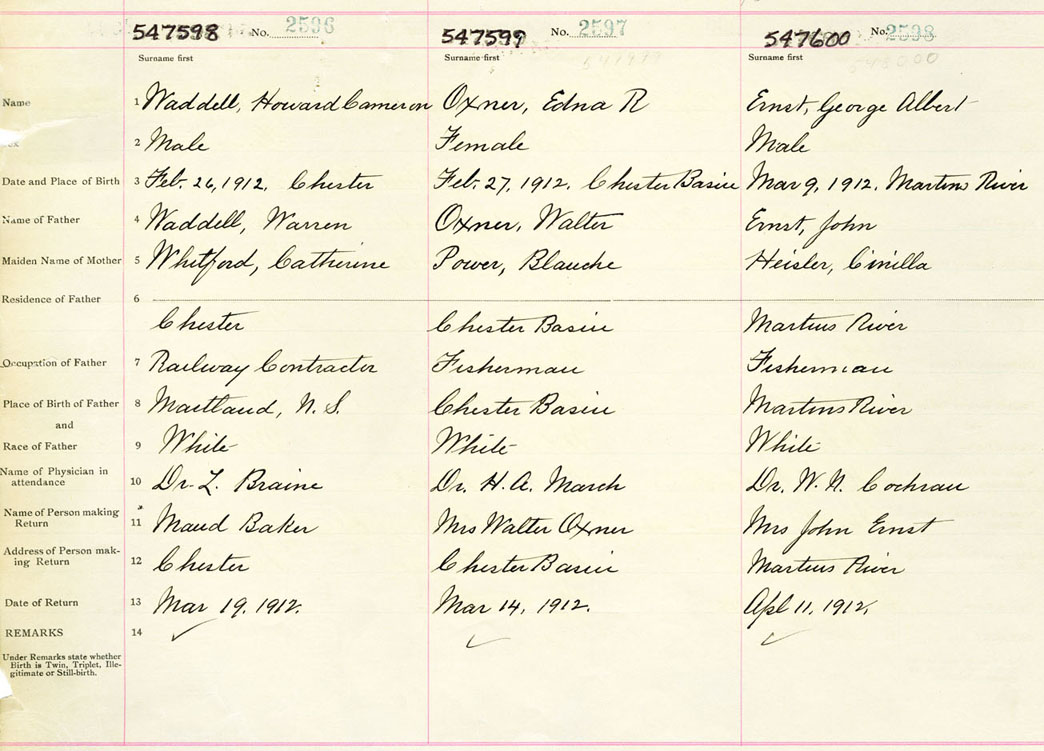 547598 No. 2596 547599 No. 2597 547600 No. 2598
Surname first Surname first Surname first
Name 1 Waddell, Howard Cameron Oxner, Edna R Ernst, George Albert
2 Male Female Male
Date and Place of Birth 3 Feb. 26, 1912. Chester Feb. 27, 1912. Chester Basin Mar 9, 1912. Martins River
Name of Father 4 Waddell, Warren Oxner, Walter Ernst, John
Maiden Name of Mother 5 Whitford, Catherine Power, Blanche Heisler, Civilla
Residence of Father 6
Chester Chester Basin Martins River
Occupation of Father 7 Railway Contractor Fisherman Fisherman
Place of Birth of Father 8 Maitland, N. S. Chester Basin Martins River
and
Race of Father 9 White White White
Name of Physician in
attendance 10 Dr. L. Braine Dr. H. A. March Dr. W. N. Cochran
Name of Person making
Return 11 Maud Baker Mrs Walter Oxner Mrs John Ernst
Address of Person mak-
ing Return 12 Chester Chester Basin Martins River
Date of Return 13 Mar 19, 1912. Mar 14, 1912. Apl 11, 1912.
REMARKS 14
Under Remarks state whether
Birth is Twin, Triplet, Ille-
gitimate or Still-birth.